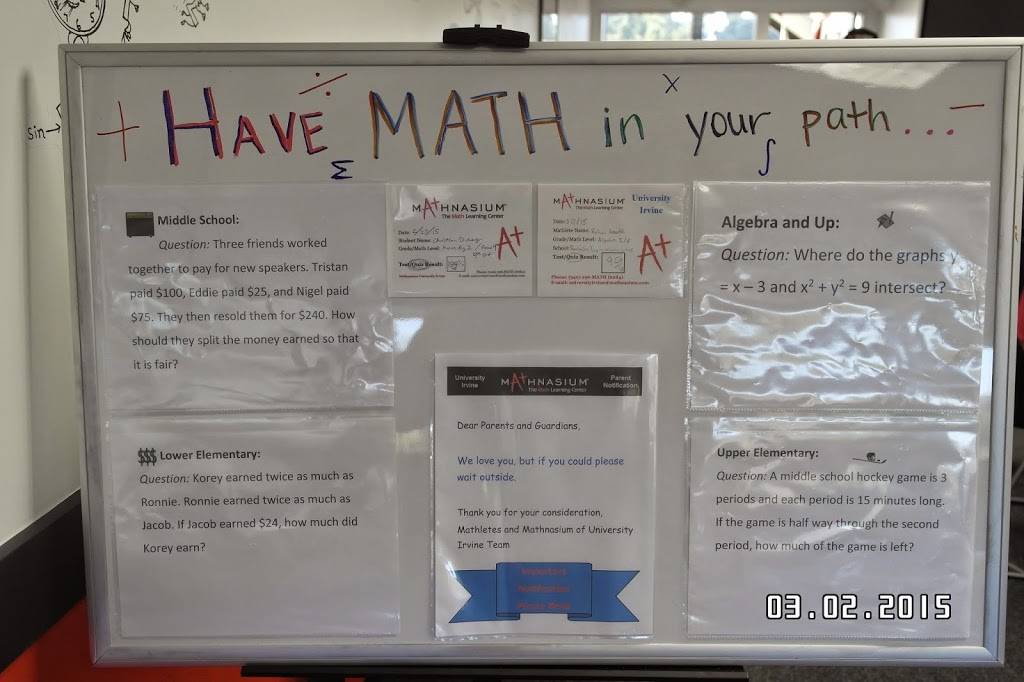 sin→
+ HAVE ÷ Σ MATH in x your ∫ path... −
Middle School:
Question: Three friends worked
together to pay for new speakers. Tristan
paid $100, Eddie paid $25, and Nigel paid
$75. They then resold them for $240. How
should they split the money earned so that
it is fair?
MATHNASIUM
The Math Learning Center
Date:
Student Name: Christian
Grade/Math Level:
Test/Quiz Result:
A+
MATHNASIUM
The Math Learning Center
University
Irvine
Date:
Mathlete Name:
Grade/Math Level:
School:
Test/Quiz Result:
A+
Algebra and Up:
Question: Where do the graphs y
= x – 3 and x² + y² = 9 intersect?
$$$ Lower Elementary:
Question: Korey earned twice as much as
Ronnie. Ronnie earned twice as much as
Jacob. If Jacob earned $24, how much did
Korey earn?
University
Irvine
MATHNASIUM
The Math Learning Center
Parent
Notification
Dear Parents and Guardians,
We love you, but if you could please
wait outside.
Thank you for your consideration,
Mathletes and Mathnasium of University
Irvine Team
Important
Notification
Please Read
Upper Elementary:
Question: A middle school hockey game is 3
periods and each period is 15 minutes long.
If the game is half way through the second
period, how much of the game is left?
03.02.2015